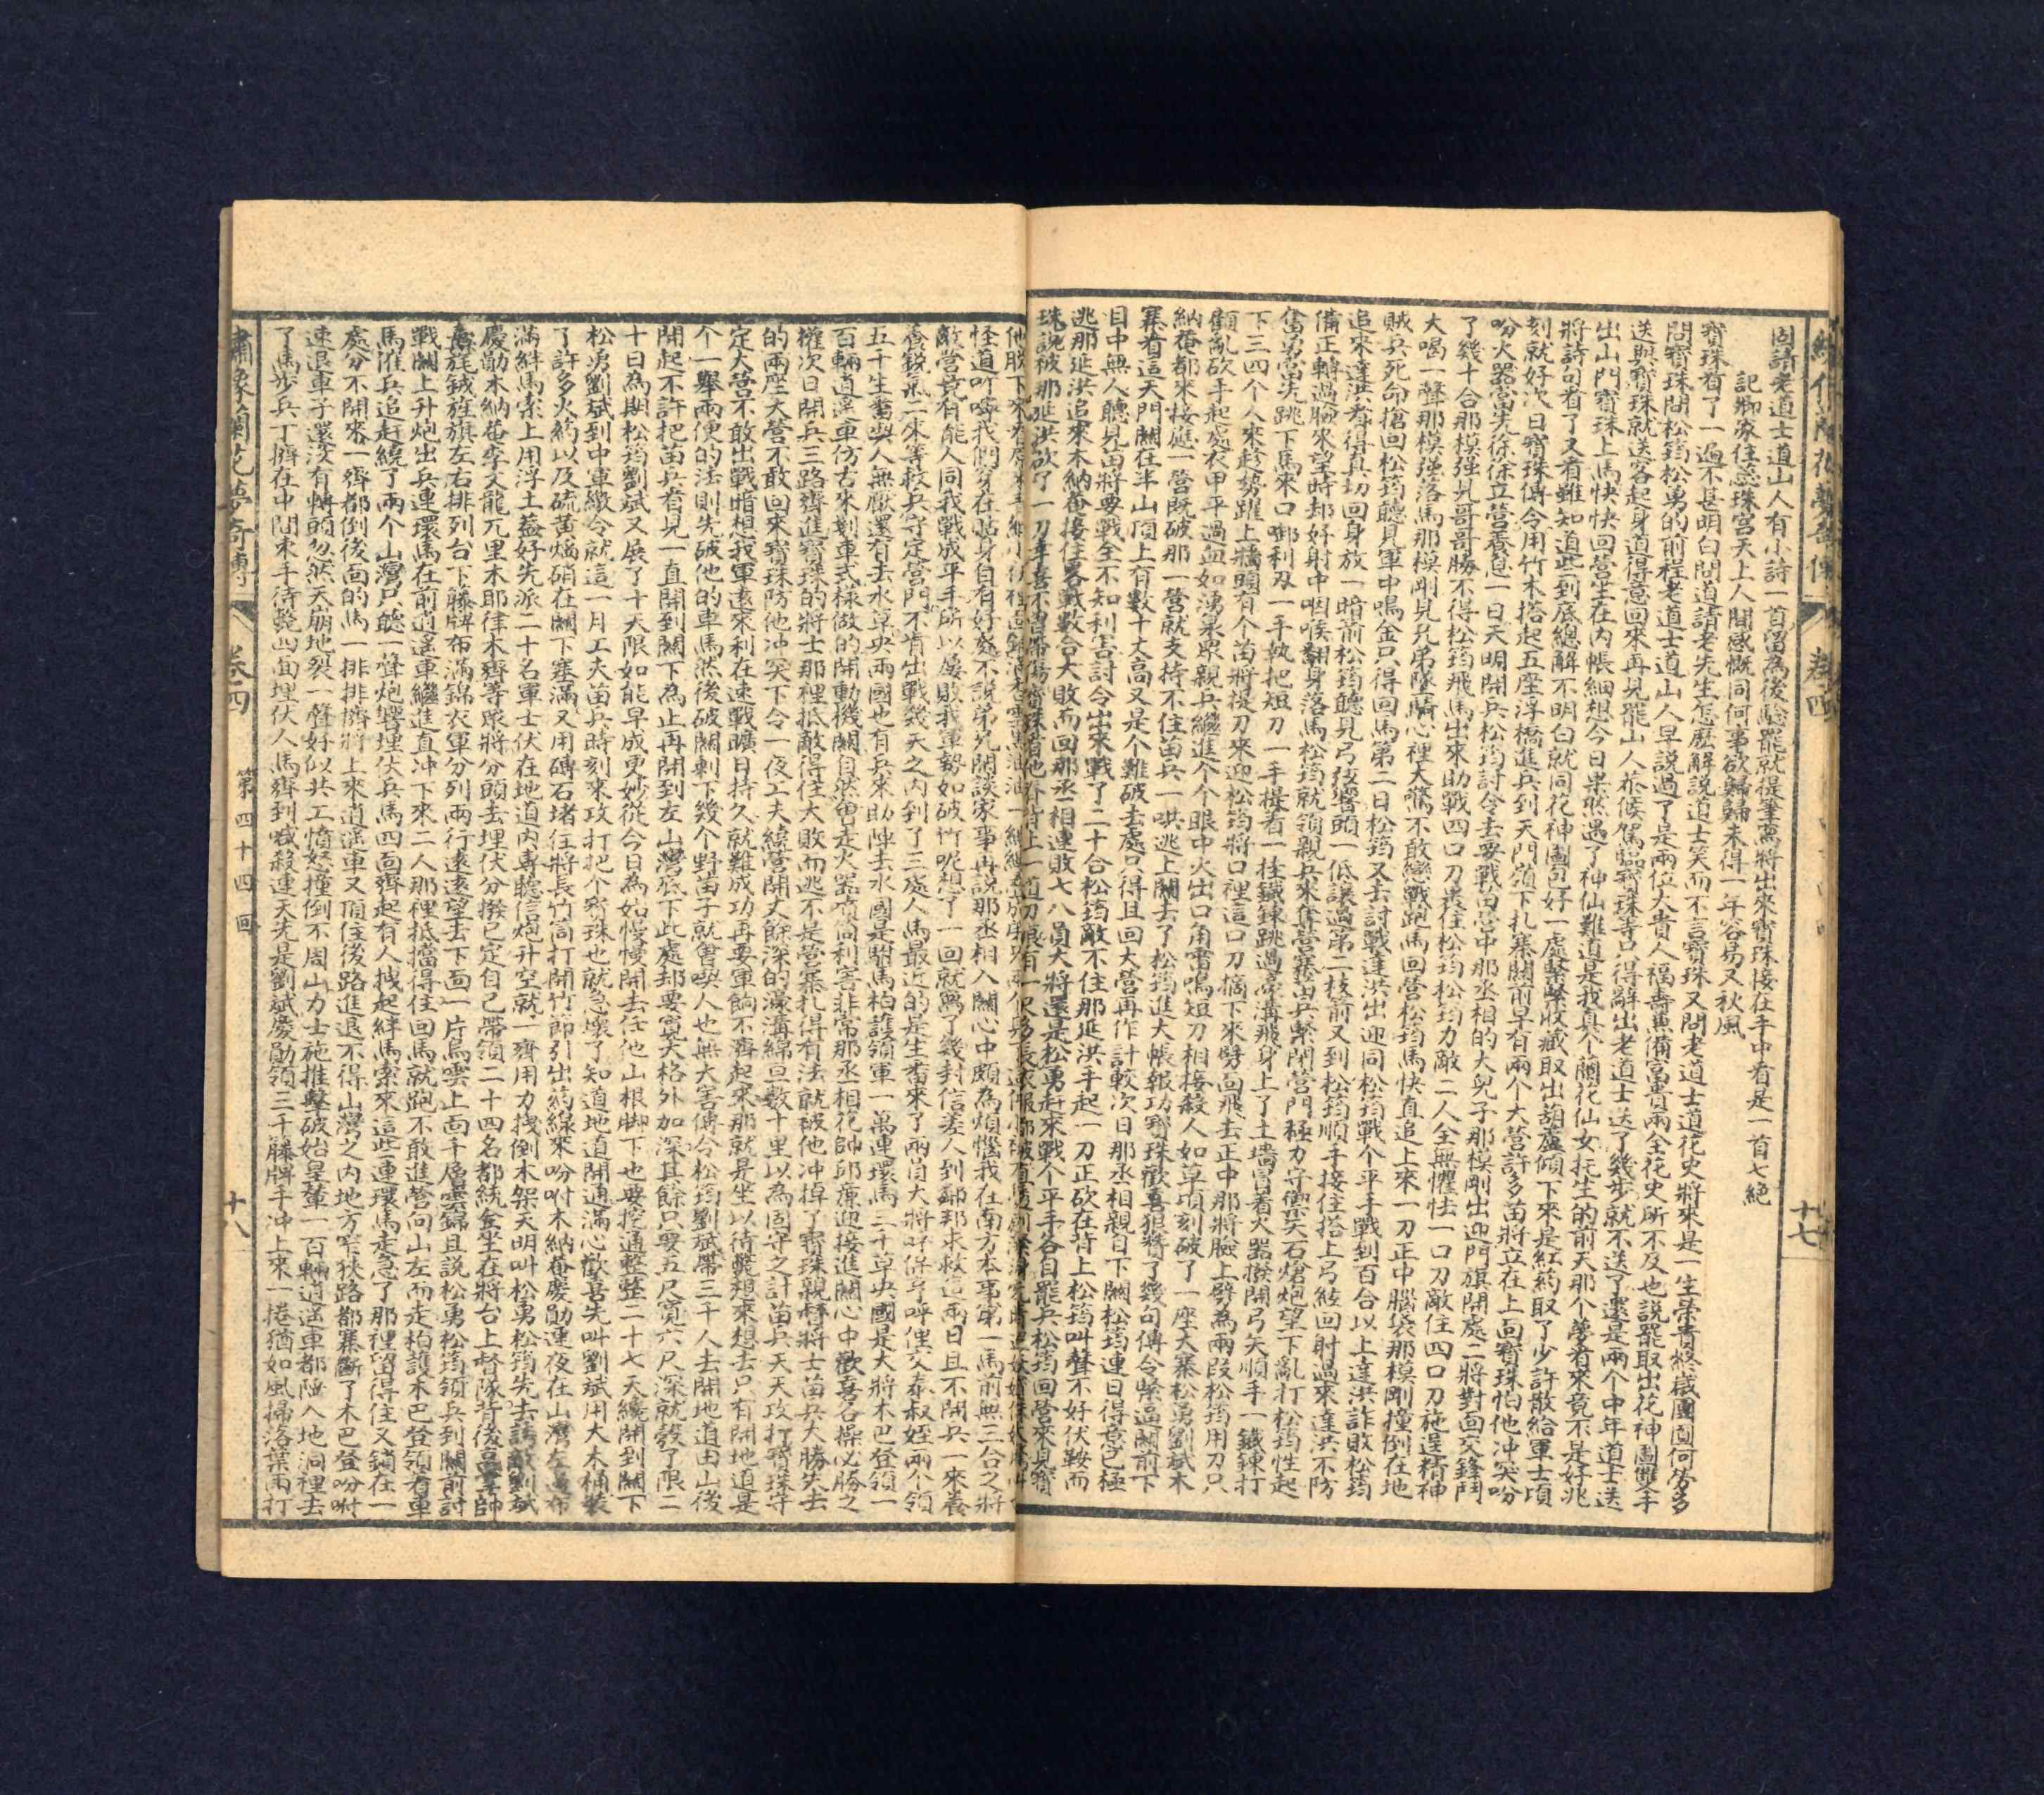 固請老道士道山人有小詩一首留為後驗罷就提筆寫將出來寶珠接在手中看是一首七絕
記卿家住蕊珠宮天上人間感慨同何事欲歸歸未得一年容易又秋風
寶珠看了一遍不甚明白問道請老先生怎麽解說道士笑而不言寶珠又問老道士道花史將來是一生榮貴終歲團圓何勞多
問寶珠問松筠松勇的前程老道士道山人早說過了是兩位大貴人福壽兼備富貴兩全花史所不及也說罷取出花神圖雙手
送與寶珠就送客起身道得意回來再見罷山人恭候駕臨寶珠等只得辭出老道士送了幾步就不送了還是兩个中年道士送
出山門寶珠上馬快快回營坐在內帳細想今日果然遇了神仙難道是我真个蘭花仙女托生的前天那个夢看來竟不是好兆
將詩句看了又看雖知道些到底總解不明白就同花神圖包好一處緊緊收藏取出葫蘆傾下來是紅葯取了少許散給軍士頃
刻就好次日寶珠傳令用竹木搭起五座浮橋進兵到天門嶺下扎寨關前早有兩个大營許多苗將立在上面寶珠怕他冲突吩
吩火器當先徐徐立營養息一日天明開兵松筠討令去要戰苗營中那丞相的大兒子那模剛出迎門旗開處二將對面交鋒鬥
了幾十合那模强見哥哥勝不得松筠飛馬出來助戰四口刀裹住松筠松筠力敵二人全無懼怯一口刀敵住四口刀施逞精神
大喝一聲那模强落馬那模剛見兄弟墜騎心裡大驚不敢戀戰跑馬回營松筠馬快直追上來一刀正中腦袋那模剛撞倒在地
賊兵死命搶回松筠聽見軍中鳴金只得回馬第二日松筠又去討戰達洪出迎同松筠戰个平手戰到百合以上達洪詐敗松筠
追來達洪看得真切回身放一暗箭松筠聽見弓弦響頭一低讓過第二枝箭又到松筠順手接住搭上弓絃回射過來達洪不防
備正轉過臉來望時却好射中咽喉翻身落馬松筠就領親兵來奪營寨苗兵緊閉營門極力守禦矢石熗炮望下亂打松筠性起
奮勇當先跳下馬來口啣利刃一手執把短刀一手提着一挂鐵鍊跳過濠溝飛身上了土墻冒着火器撥開弓矢順手一鐵鍊打
下三四个人來趁勢躍上牆頭有个苗將提刀來迎松筠將口裡這口刀摘下來劈面飛去正中那將臉上劈為兩段松筠用刀只
顧亂砍手起處衣甲平過血如湧泉眾親兵繼進个个眼中火出口角雷鳴短刀相接殺人如草頃刻破了一座大寨松勇劉斌木
納菴都來接應一營既破那一營就支持不住苗兵一哄逃上關去了松筠進大帳報功寶珠歡喜狠獎了幾句傳令柴逼關前下
寨看這天門關在半山頂上有數十丈高又是个難破去處只得且回大營再作計較次日那丞相親自下關松筠連日得意已極
目中無人聽見苗將要戰全不知利害討令出來戰了二十合松筠敵不住那延洪手起一刀正砍在背上松筠叫聲不好伏鞍而
逃那延洪追來木納菴接住畧戰數合大敗而回那丞相連敗七八員大將還是松勇赶來戰个平手各自罷兵松筠回營來見寶
珠說被那延洪砍了一刀幸喜不曾帶傷寶珠看他脊背上一道刀痕有一尺多長
怪道吓嚀我們穿在貼身自有好處不說弟兄閒談家事再說那丞相入關心中頗為煩惱我在南方本事第一馬前無三合之將
敵營竟有能人同我戰成平手所以屢敗我軍勢如破竹呢想了一回就寫了幾封信差人到鄰邦求救這兩日且不開兵一來養
養銳氣二來等救兵守定營門不肯出戰幾天之內到了三處人馬最近的是生番來了兩員大將呼保呼哩交泰叔姪兩个領
五千生番與人無厭還有去水草央兩國也有兵來助陣去水國是駙馬柏護領軍一萬連環馬三千草央國是大將木巴登領一
百輛逍遥車仿古來剿車式樣做的開動機關自然會走火器噴筒利害非常那丞相花帥邱廉迎接進關心中歡喜名操必勝之
權次日開兵三路齊進寶珠的將士那裡抵敵得住大敗而逃不是營寨扎得有法就被他冲掉了寶珠親督將士苗兵大勝失去
的兩座大營不敢回來寶珠防他冲突下令一夜工夫繞營開丈餘深的濠溝綿亘數十里以為固守之計苗兵天天攻打寶珠守
定大營不敢出戰暗想我軍遠來利在速戰曠日持久就難成功再要軍餉不濟起來那就是坐以待斃想來想去只有開地道是
个一舉兩便的法則先破他的車馬然後破關剩下幾个野苗子就會喫人也無大害傳令松筠劉斌帶三千人去開地道由山後
開起不許把苗兵看見一直開到關下為止再開到左山灣底下此處却要寬大格外加深其餘只要五尺寬六尺深就彀了限二
十日為期松筠劉斌又展了十天限如能早成更妙從今日為始慢慢開去任他山根脚下也要挖通整整二十七天纔開到關下
松勇劉斌到中軍繳令就這一月工夫苗兵時刻來攻打把个寶珠也就急壞了知道地道開通滿心歡喜先叫劉斌用大木桶裝
了許多火葯以及硫黃燄硝在關下塞滿又用磚石堵住將長竹筒打開竹節引出葯線來吩咐木納菴慶勛連夜在山灣左邊布
滿絆馬索上用浮土蓋好先派二十名軍士伏在地道內專聽信炮升空就一齊用力拽倒木架天明叫松勇松筠先去誘敵劉斌
慶勛木納菴李文龍兀里木耶律木齊等眾將分頭去埋伏分撥已定自己帶領二十四名都統金坐在將台上督隊背後
旄鉞旌旗左右排列台下籐牌布滿錦衣軍分列兩行遠遠望去下面一片烏雲上面千層雲錦且說松勇松筠領兵到關前討
戰關上升炮出兵連環馬在前逍遥車繼進直冲下來二人那裡抵擋得住回馬就跑不敢進營向山左而走柏護木巴登領着車
馬催兵追赶繞了兩个山灣只聽一聲炮響埋伏兵馬四面齊起有人拽起絆馬索來這些連環馬走急了那裡留得住又鎖在一
處分不開來一齊都倒後面的馬一排排擠將上來逍遥車又頂住後路進退不得山灣之內地方窄狹路都塞斷了木巴登吩咐
速退車子還沒有轉頭忽然天崩地裂一聲好似共工憤怒撞倒不周山力士施推擊破始皇輦一百輛逍遥車都陷入地洞裡去
了馬步兵丁擠在中間束手待斃四面埋伏人馬齊到喊殺連天先是劉斌慶勛領三千籐牌手冲上來一捲猶如風掃落葉雨打
繡像蘭花夢奇傳 卷四 第四十四回 十八